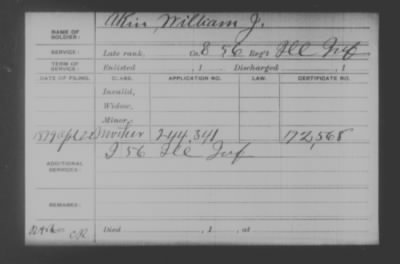 NAME OF SOLDIER: Akin, William J.
SERVICE: Late rank, Co. 8 56 Reg't Ill Inf
TERM OF SERVICE: Enlisted , 1 Discharged , 1
DATE OF FILING. CLASS. APPLICATION NO. LAW. CERTIFICATE NO.
Invalid,
Widow,
Minor,
1879 Apl Mother 244,341 172,568
ADDITIONAL SERVICES: I 56 Ill Inf
REMARKS:
Died , 1 , at